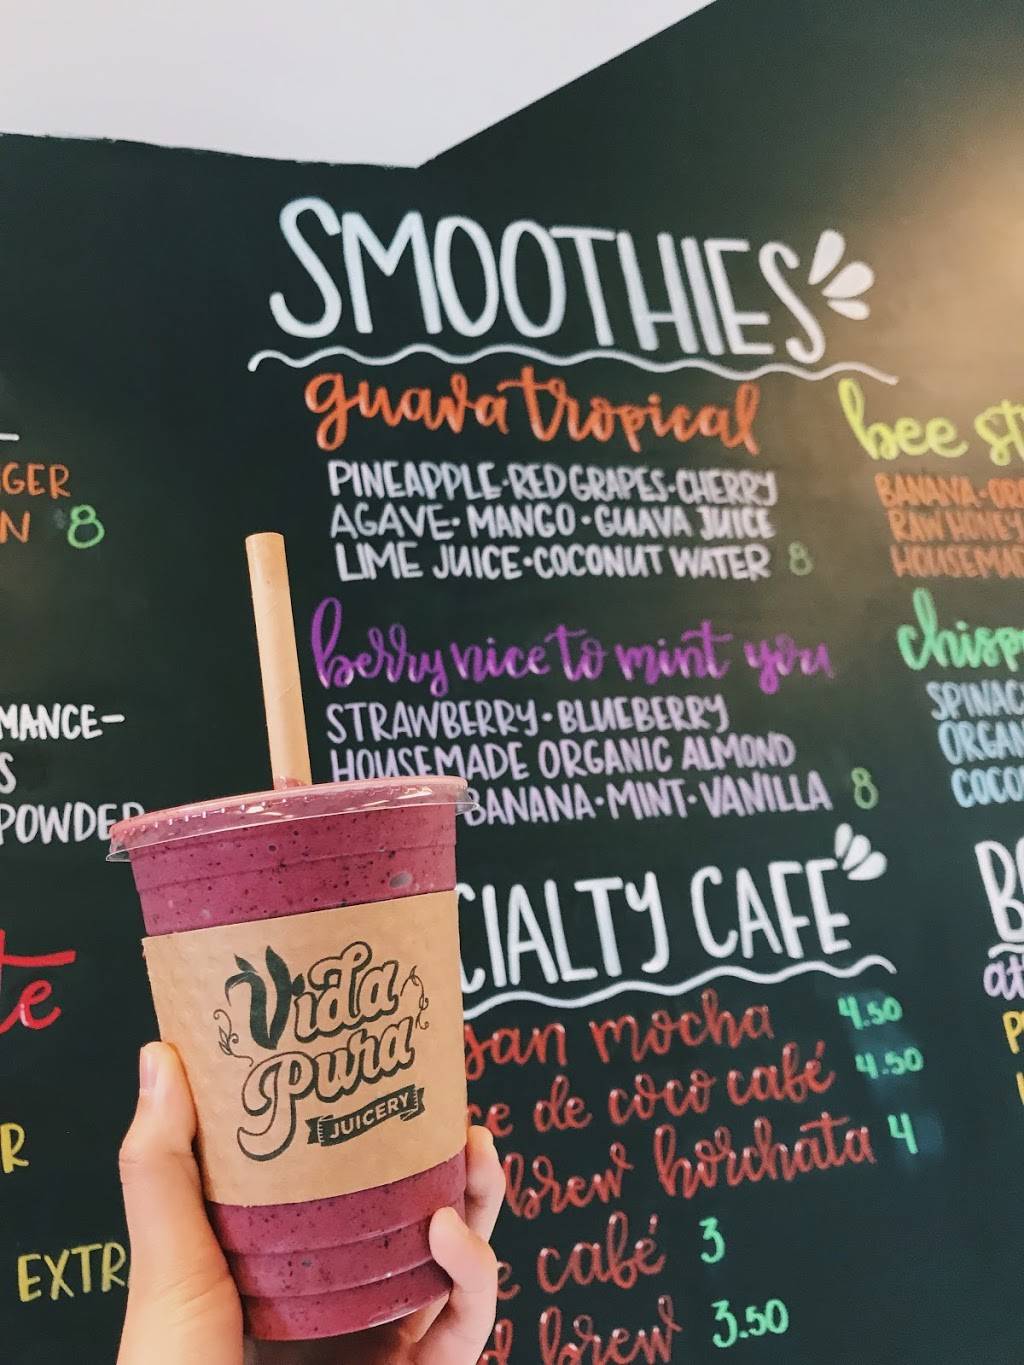 SMOOTHIES
guava tropical
PINEAPPLE·RED GRAPES·CHERRY
AGAVE·MANGO·GUAVA JUICE
LIME JUICE·COCONUT WATER 8
berry nice to mint you
STRAWBERRY·BLUEBERRY
HOUSEMADE ORGANIC ALMOND
BANANA·MINT·VANILLA 8
CIALTY CAFE
gan mocha 4.50
ce de coco café 4.50
brew horchata 4
e café 3
d brew 3.50
bee st
BANANA·OR
RAW HONEY
HOUSEMAD
chisp
SPINAC
ORGAN
COCO
B
at
GER
N 8
MANCE-
S
POWDER
te
R
EXTR
Vida
Pura
JUICERY